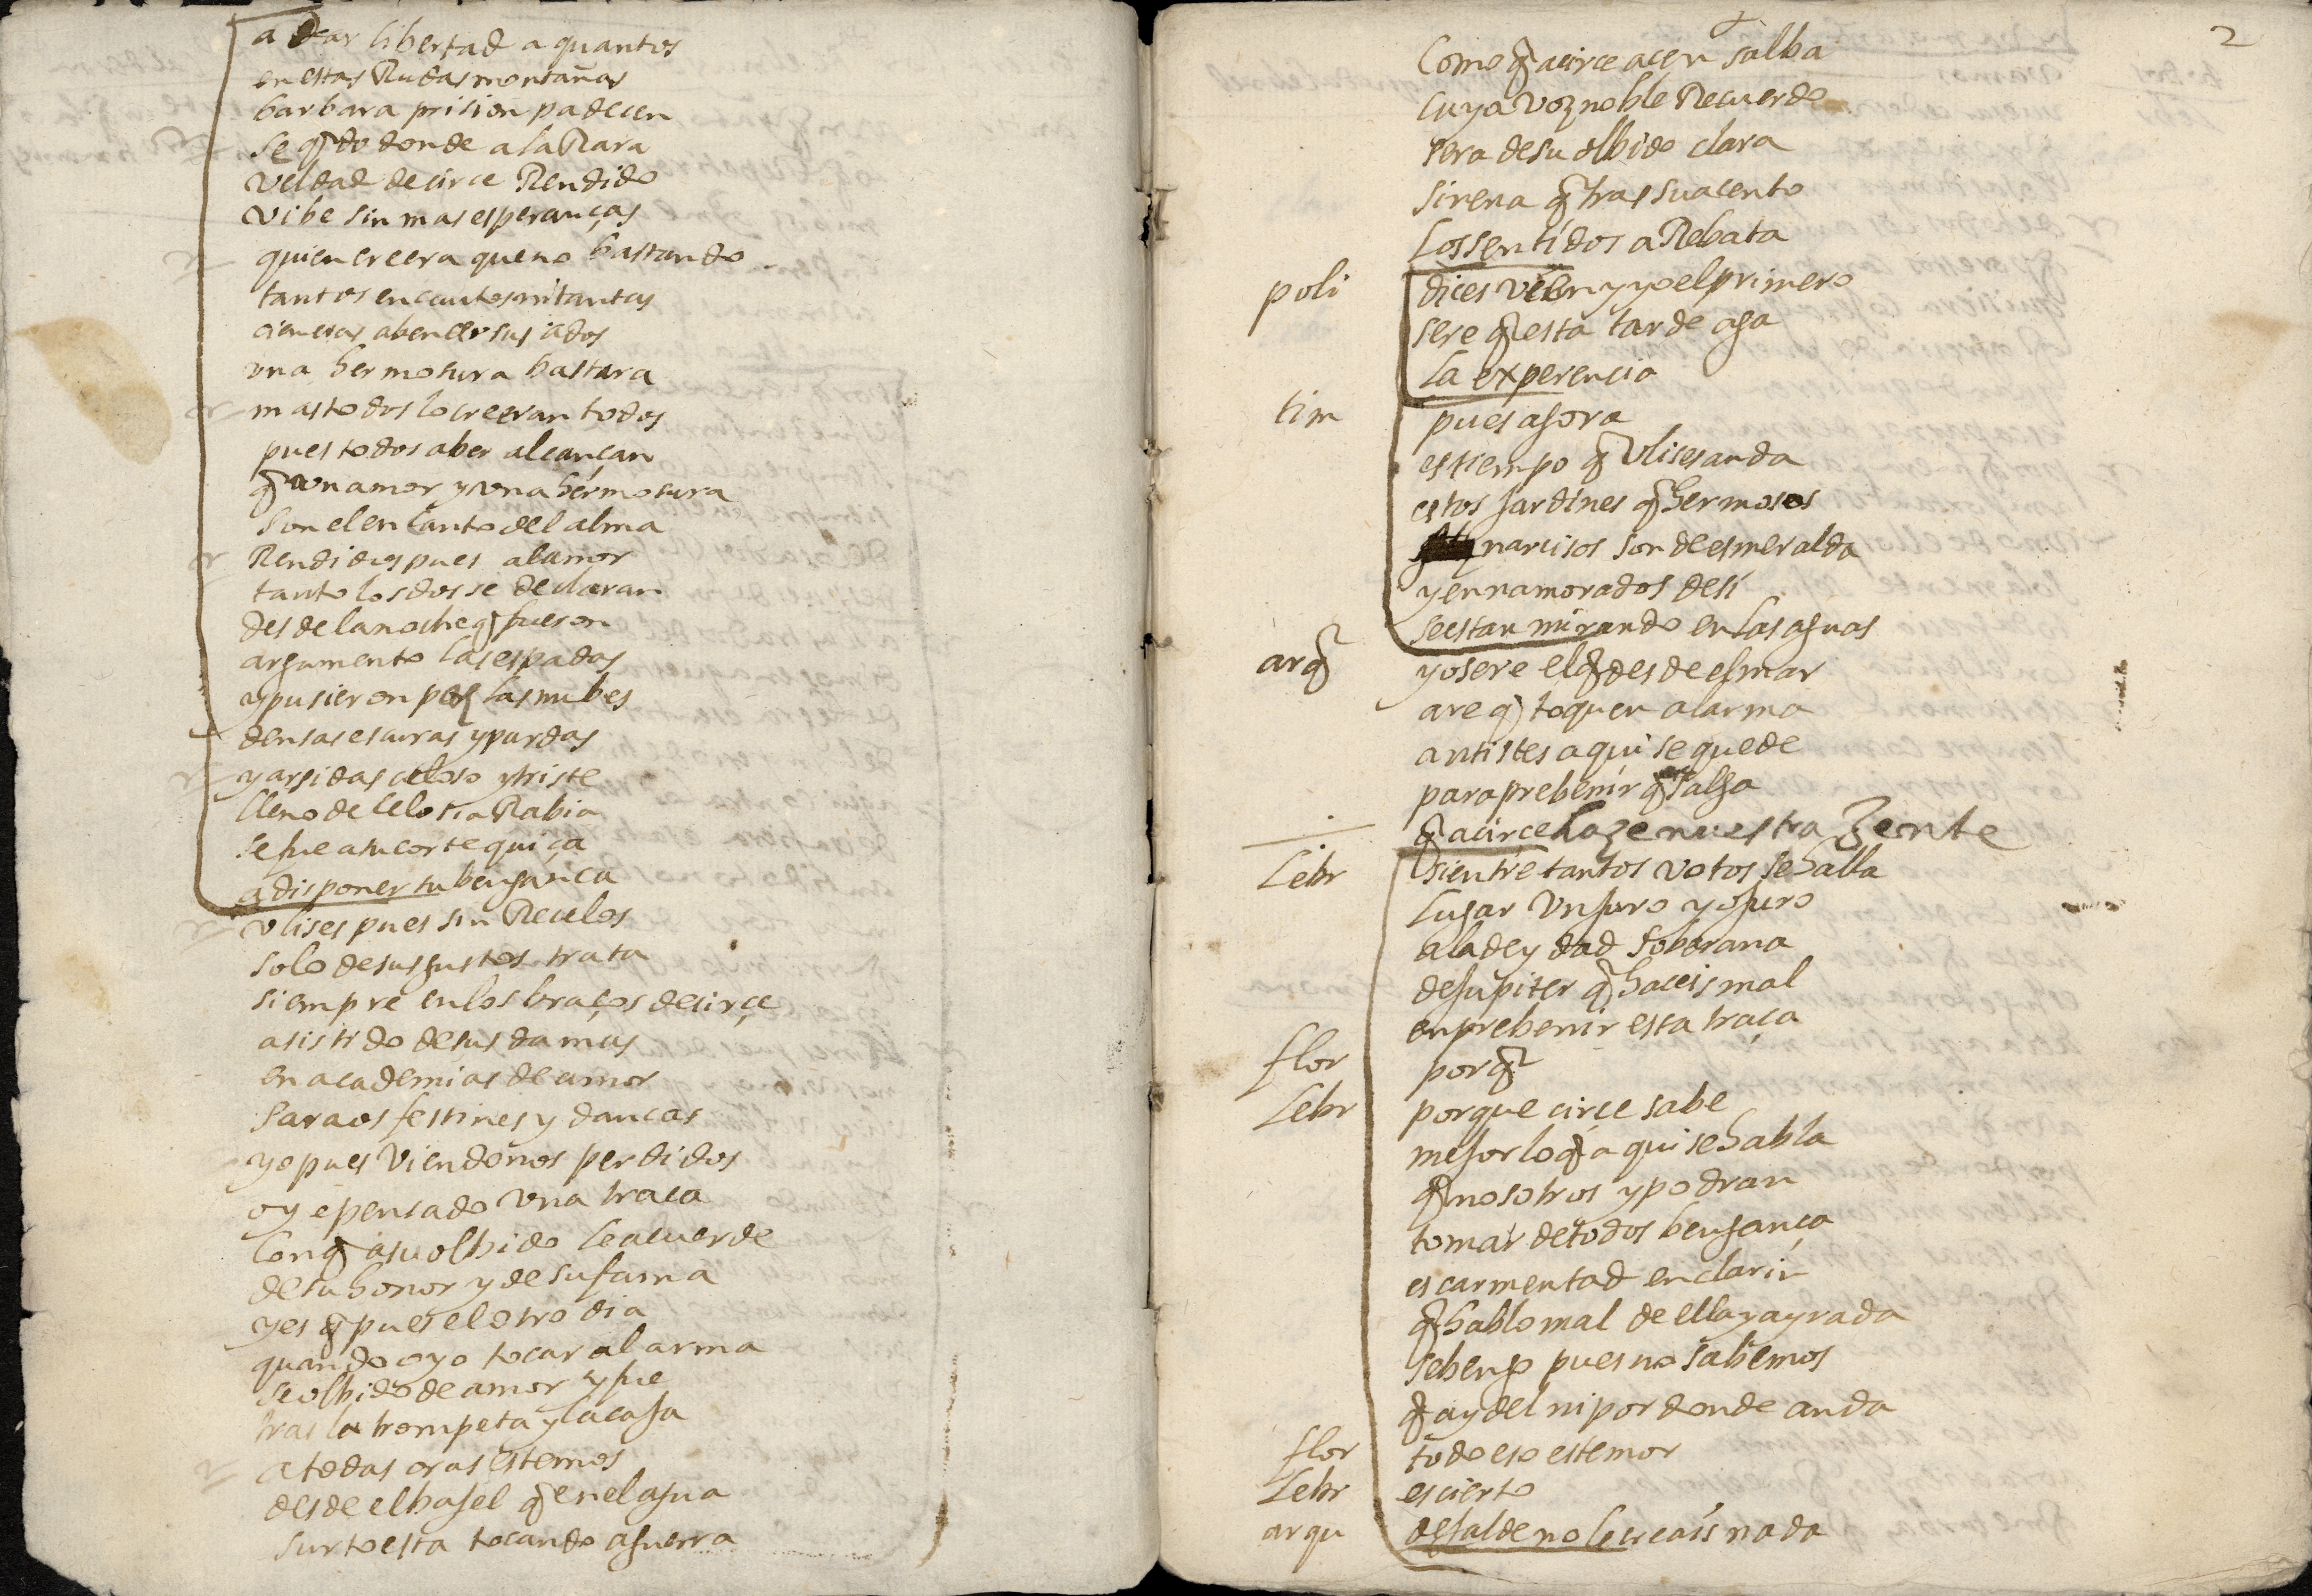 a dar libertad a quantos
en estas Rudas montañas
barbara prision padecen
se q̃do donde a la Rara
veldad de circe Rendido
vibe sin mas esperanças
quien creera que no bastando
tantos encantos ni tantas
ciencias a bencer sus ados
una hermosura bastara
mas todos lo creeran todos
pues todos aber alcançan
q̃ un amor y una hermosura
son el encanto del alma
Rendidos pues al amor
tanto los dos se declaran
desde la noche q̃ fueron
argumento las espadas
y pusieron paz las nubes
densas escuras y pardas
y arsidas celoso y triste
lleno de celosa Rabia
se fue a su corte quiça
a disponer su bengança
ulises pues sin Recelos
solo de sus gustos trata
siempre en los braços de cirçe
asistido de sus damas
en academias de amor
saraos festines y dancas
yo pues viendonos perdidos
oy e pensado una traca
con q̃ a su olbido le acuerde
de su honor y de su fama
y es q̃ pues el otro dia
quando oyo tocar al arma
se olbido de amor y fue
tras la trompeta y la caja
a todas oras estemos
desde el bajel q̃ en el agua
surto esta tocando a guerra
2
Como q̃ a circe acen salba
cuya voz noble Recuerdo
sera de su olbido clara
sirena q̃ tras su acento
los sentidos aRebata
poli dices bien y yo el primero
sere q̃ esta tarde aga
la experencia
tim pues agora
es tiempo q̃ Ulises anda
estos jardines q̃ hermosos
narcisos son de esmeralda
y ennamorados de si
se estan mirando en las aguas
arq̃ yo sere el q̃ desde el mar
are q̃ toquen al arma
antistes aqui se quede
para prebenir q̃ salga
q̃ a circe haze nuestra Zente
Lebr si entre tantos votos se halla
lugar un juro yo juro
a la deydad soberana
de jupiter q̃ haceis mal
en prebenir esta traça
flor porq̃
Lebr porque circe sabe
mejor lo q̃ aqui se habla
q̃ nosotros y podran
tomar de todos bengança
escarmentad en clarin
q̃ hablo mal de ella y ayrada
se bengo pues no sabemos
q̃ ay del ni por donde anda
flor todo eso es temor
Lebr es cierto
arqu dejalde no le creais nada